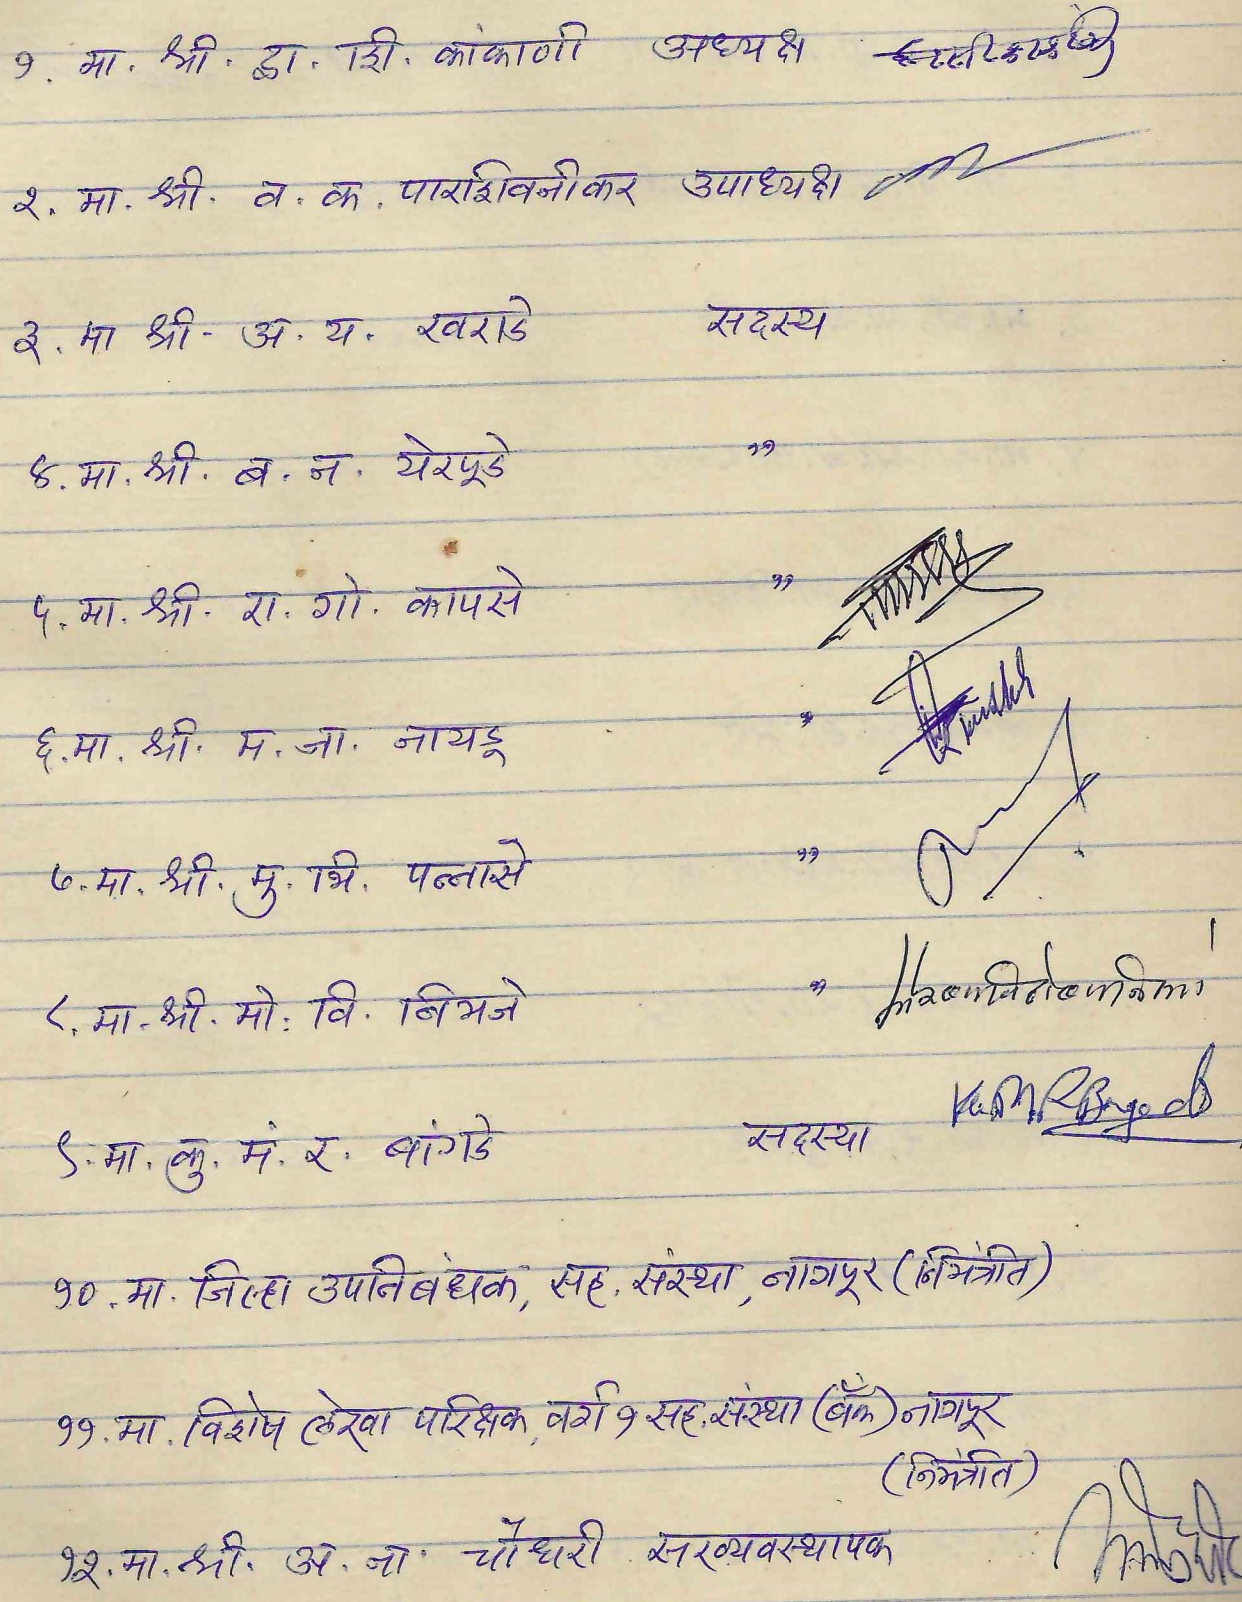 १. मा. श्री. द्वा. शि. कांकाणी अध्यक्ष
२. मा. श्री. व. क. पारशिवनीकर उपाध्यक्ष
३. मा श्री- अ. य. खराडे सदस्य
४. मा. श्री. ब. न. येरपूडे "
५. मा. श्री. रा. गो. कापसे "
६. मा. श्री. म. ना. नायडू "
७. मा. श्री. मु. भि. पन्नासे "
८. मा. श्री. मो. वि. निमजे "
९. मा. कु. मं. र. बांगडे सदस्या
१०. मा. जिल्हा उपनिबंधक, सह. संस्था, नागपूर (निमंत्रीत)
११. मा. विशेष लेखा परिक्षक, वर्ग १ सह. संस्था (बँक) नागपूर
(निमंत्रीत)
१२. मा. श्री. अ. ना. चौधरी सरव्यवस्थापक